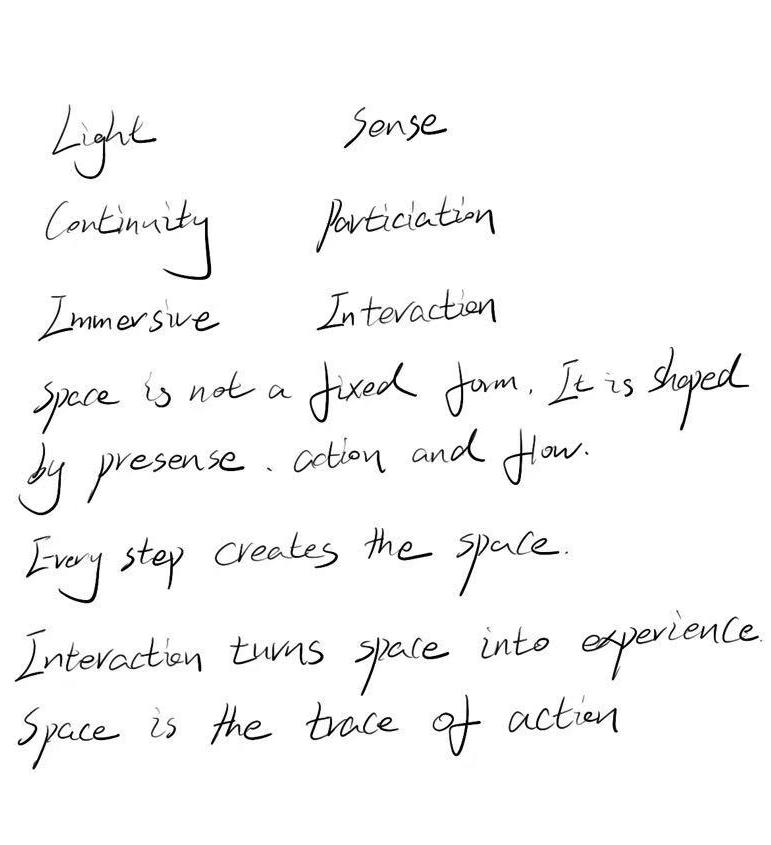 Light Sense
Continuity Particiation
Immersive Interaction
Space is not a fixed form. It is shaped
by presense. action and flow.
Every step creates the space.
Interaction turns space into experience.
Space is the trace of action